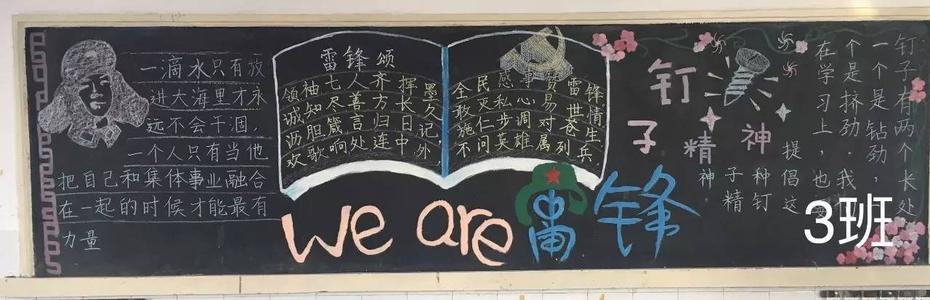 一滴水只有放
进大海里才永
远不会干涸,
一个人只有当他
把自己和集体事业融合
在一起的时候才能最有
力量
雷锋颂
领袖七人齐挥墨
诚知尽善方长久
沥胆箴言归日记,
欢歌响处连中外
全民感事雷锋
敢灭私心易世情
施仁步调对苍生
不问英雄属列兵
we are 雷锋
钉子精神
钉子有两个长处
一个是钻劲,
个是挤劲.我
在学习上,也
提倡这
种钉
子精
神
3班